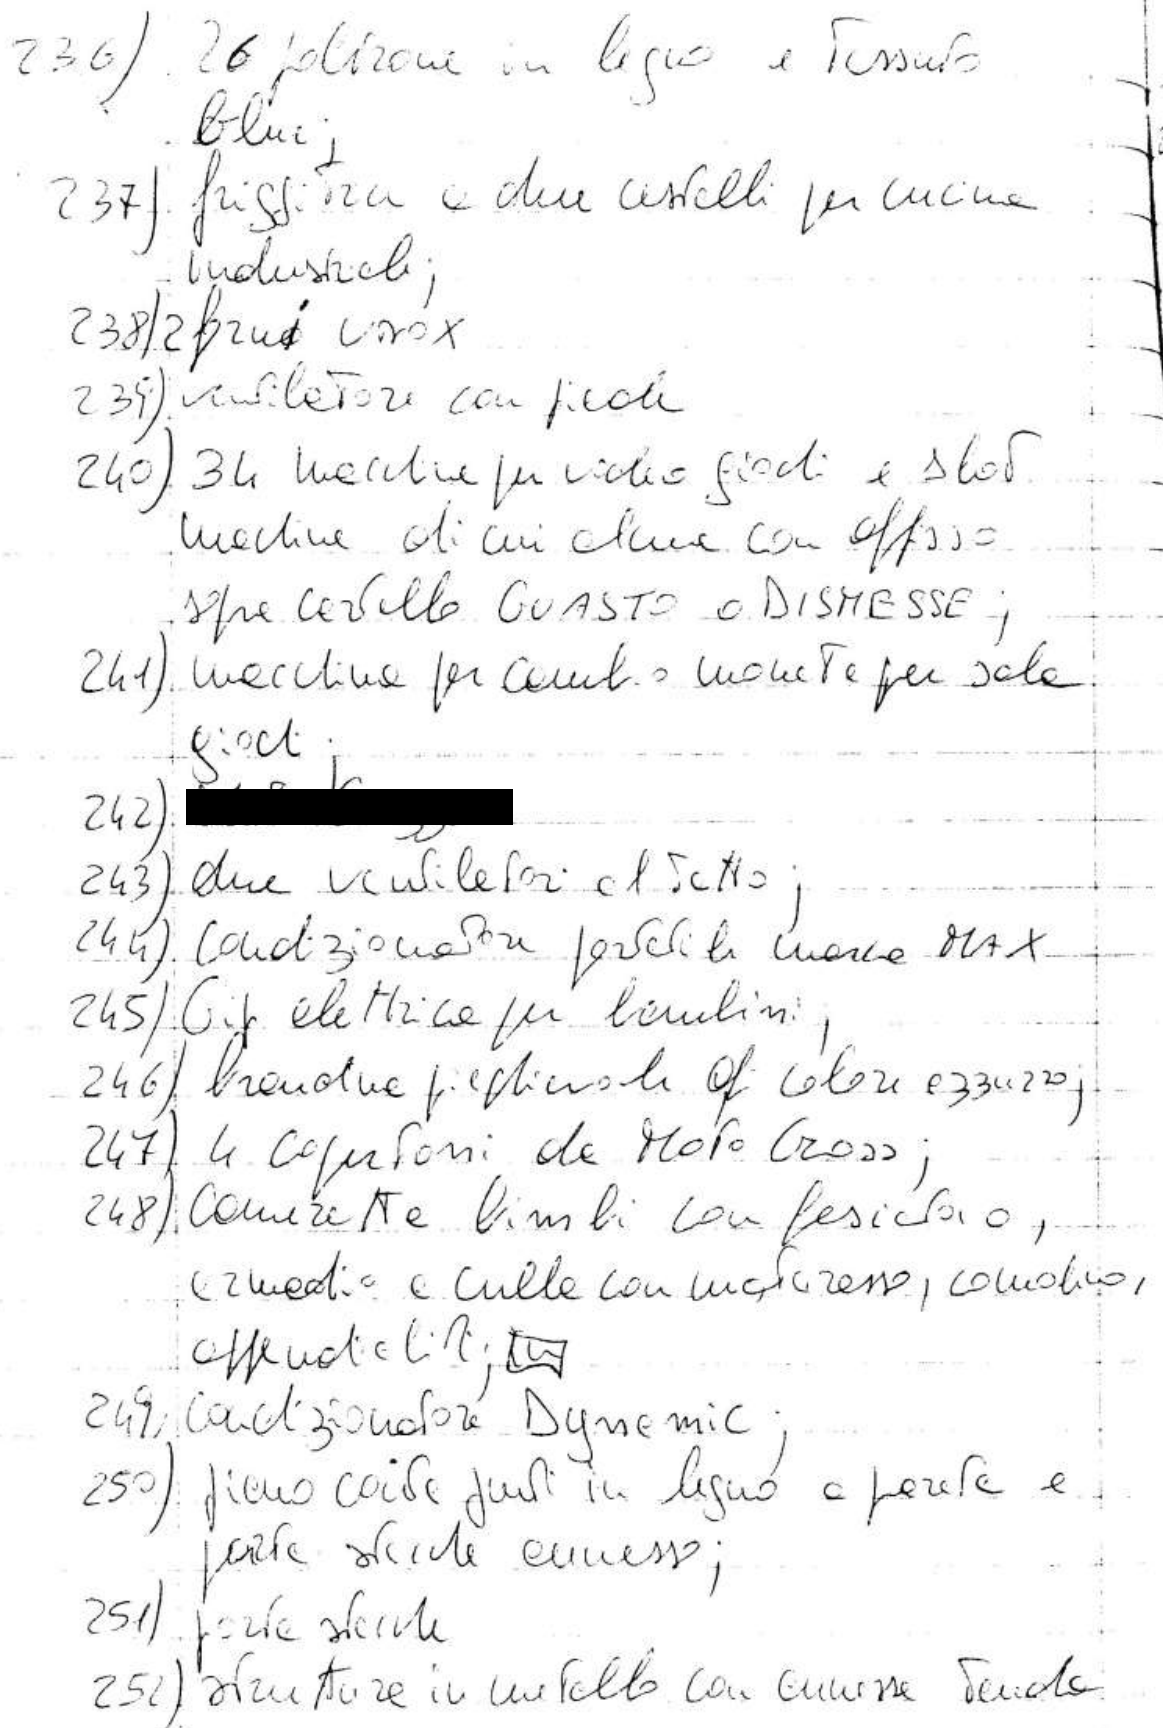 236) 26 poltrone in legno e tessuto
blu;
237) friggitrice a due cestelli per cucina
industriale;
238) 2 forni
239) ventilatore con piede
240) 34 macchine per video giochi e slot
machine di cui alcune con affisso
sopra cartello GUASTO o DISMESSE;
241) macchina per cambio monete per sala
giochi;
242)
243) due ventilatori al tetto;
244) condizionatore portatile marca MAX
245) Gip elettrica per bambini,
246) brandina pieghevole di colore azzurro;
247) 4 copertoni da Moto Cross;
248) Camerette bimbi con fasciatoio,
armadio e culle con materasso, comodino,
appendiabiti;
249) Condizionatore Dynamic;
250) piano conta punti in legno a parete e
porta stecche annesso;
251) porta stecche
252) strutture in metallo con annessa tenda